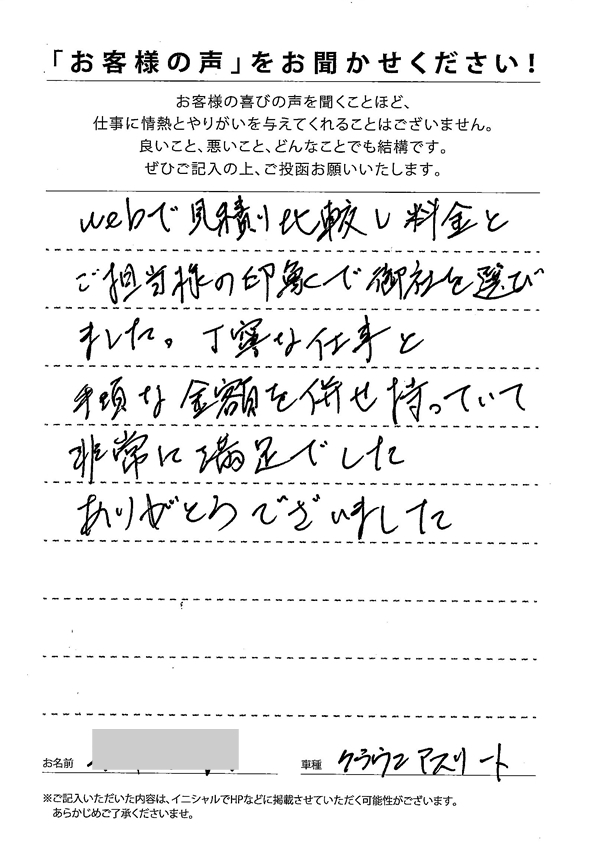 「お客様の声」をお聞かせください！
お客様の喜びの声を聞くことほど、
仕事に情熱とやりがいを与えてくれることはございません。
良いこと、悪いこと、どんなことでも結構です。
ぜひご記入の上、ご投函お願いいたします。
webで見積り比較し料金と
ご担当様の印象で御社を選び
ました。丁寧な仕事と
手頃な金額を併せ持っていて
非常に満足でした
ありがとうございました
お名前
車種 クラウンアスリート
※ご記入いただいた内容は、イニシャルでHPなどに掲載させていただく可能性がございます。
あらかじめご了承くださいませ。